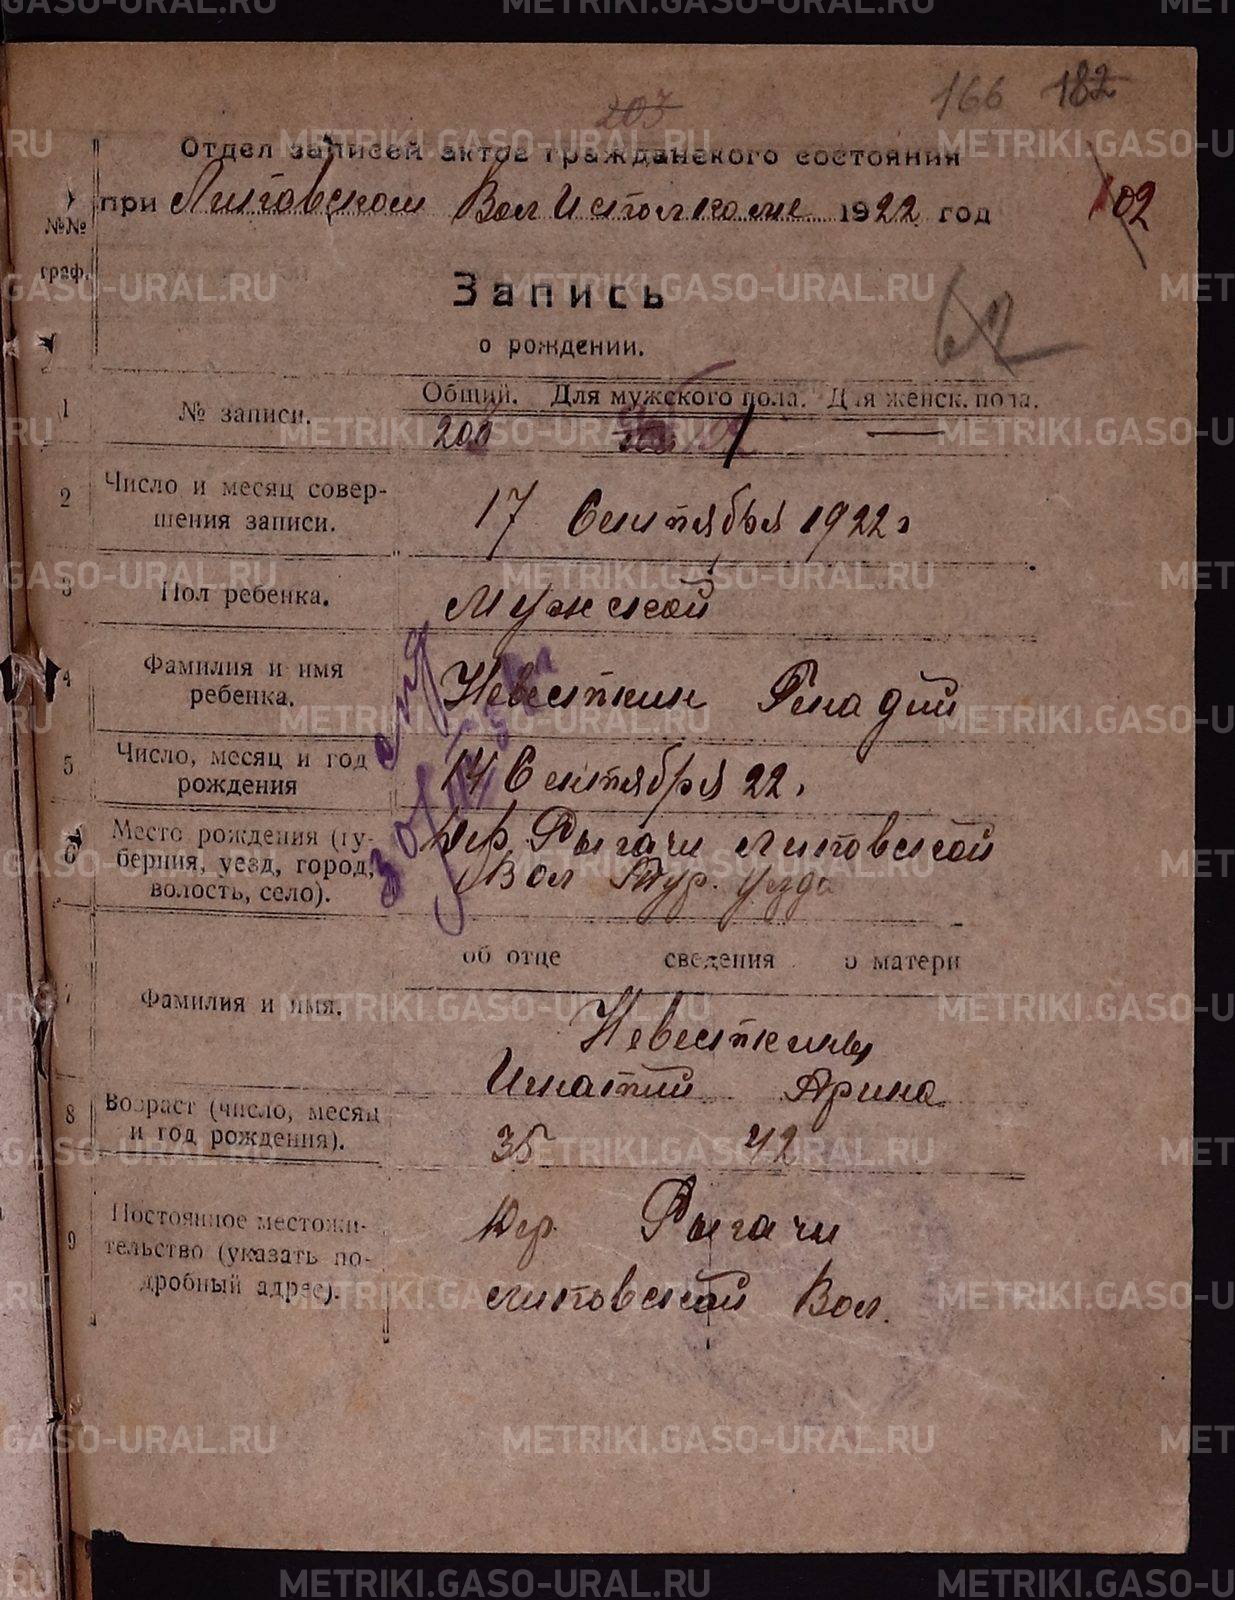 166 182
207
Отдел записей актов гражданского состояния
при Липовском ВолИсполкоме 1922 год
102
№№
граф.
Запись
о рождении.
62
Общий. Для мужского пола. Для женск. пола.
1 № записи.
200 102 —
2 Число и месяц совер-
шения записи.
17 Сентября 1922 г
3 Пол ребенка.
Мужской
4 Фамилия и имя
ребенка.
Невесткин Генадий
5 Число, месяц и год
рождения
14 Сентября 22.
6 Место рождения (гу-
берния, уезд, город,
волость, село).
Дер. Рычачи Липовской
Вол Тур. уезда
об отце сведения о матери
7 Фамилия и имя.
Невесткины
Игнатий Арина
8 Возраст (число, месяц
и год рождения).
35 42
9 Постоянное местожи-
тельство (указать по-
дробный адрес).
Дер. Рычачи
Липовской Вол.
METRIKI.GASO-URAL.RU